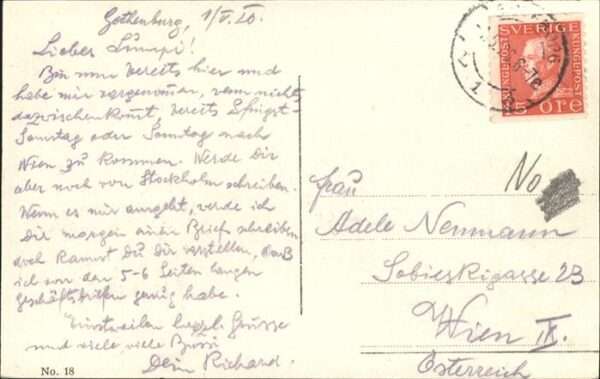 Gothenburg, 1/V. 20.
Lieber Schnupsi!
Bin nun bereits hier und
habe mir vorgenommen, wenn nichts
dazwischen kommt, bereits Pfingst-
Samstag oder Sonntag nach
Wien zu kommen. Werde Dir
aber noch von Stockholm schreiben.
Wenn es mir ausgeht, werde ich
Dir morgen einen Brief schreiben
doch kannst Du Dir vorstellen, daß
ich von den 5-6 Seiten langen
Geschäftsbriefen genug habe.
Einstweilen herzl. Grüsse
und viele viele Bussi
Dein Richard.
No. 18
SVERIGE
KUNGL. POST
15 ÖRE
No
Frau
Adele Neumann
Sobieskigasse 23
Wien IX.
Österreich